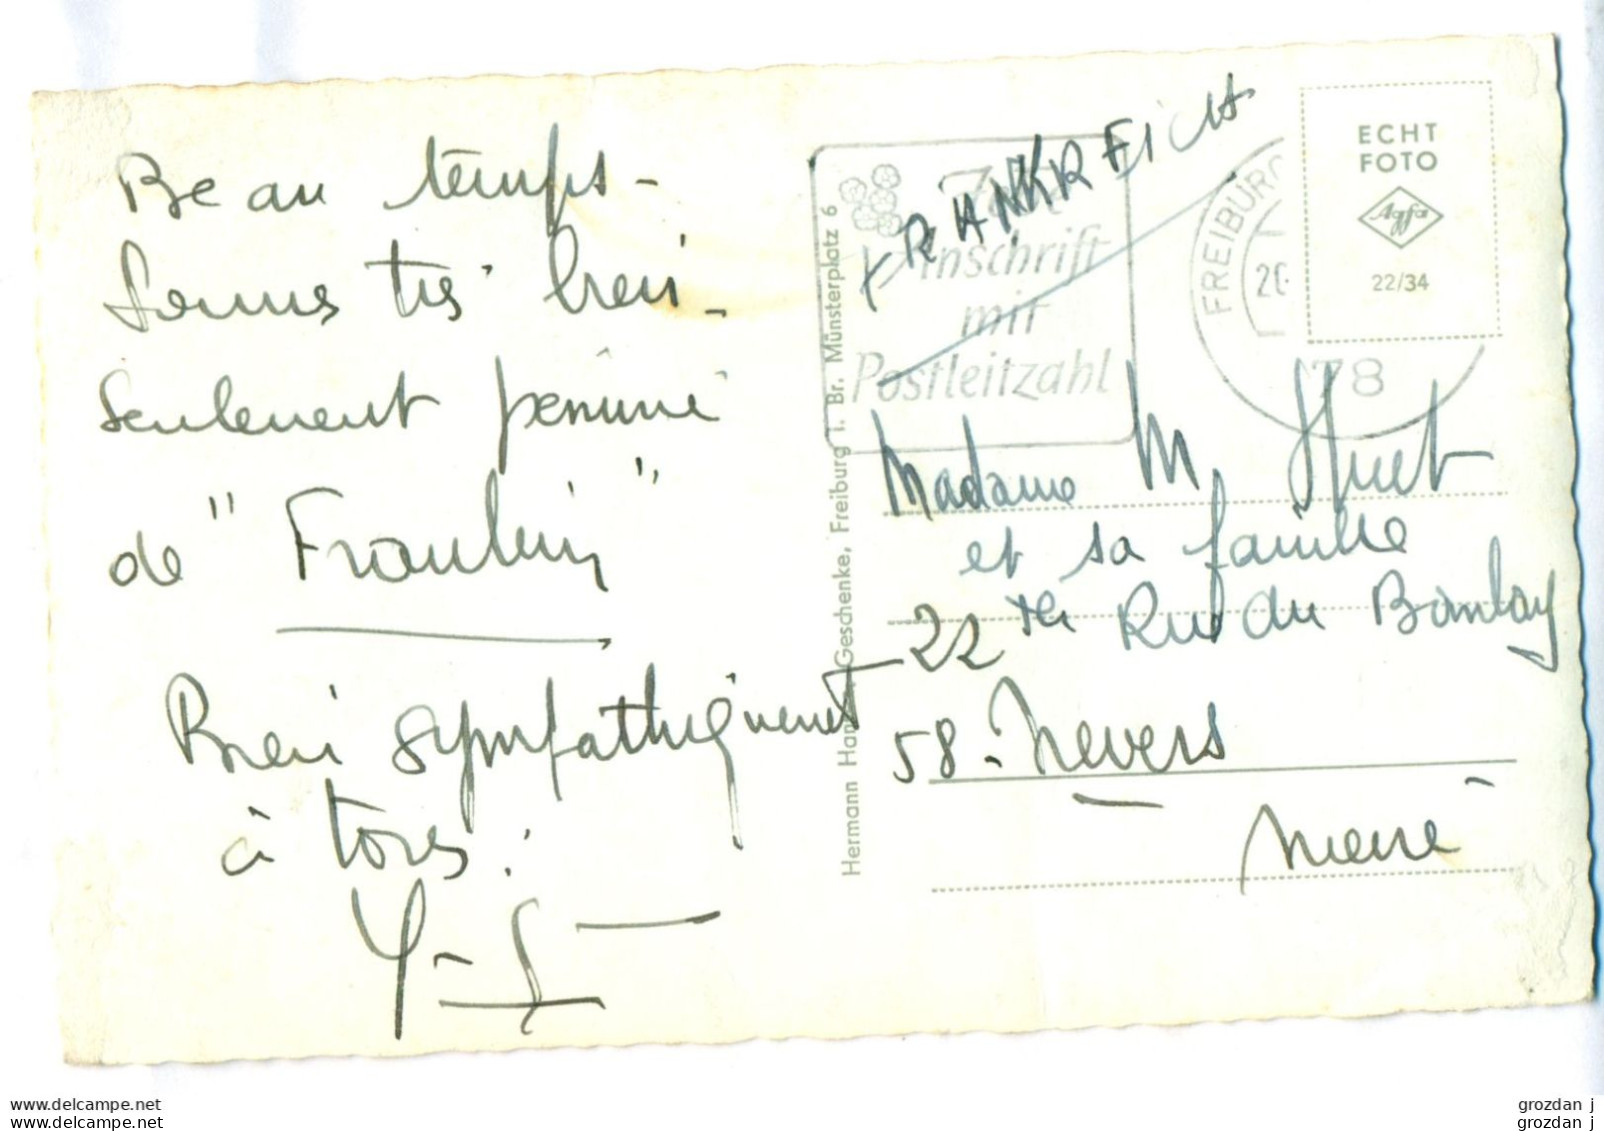 Beau temps -
Sommes très bien -
Seulement pénurie
de "Fraulein"
Bien sympathiquement
à tous.
Y-S
Hermann Geschenke, Freiburg i. Br. Münsterplatz 6
FRANKREICH
Zur
Anschrift
mit
Postleitzahl
FREIBURG
20.
78
ECHT
FOTO
Agfa
22/34
Madame M. Huet
et sa famille
22 Rue du Bomlay
58 - Nevers
Nièvre
www.delcampe.net
www.delcampe.net
grozdan j
grozdan j